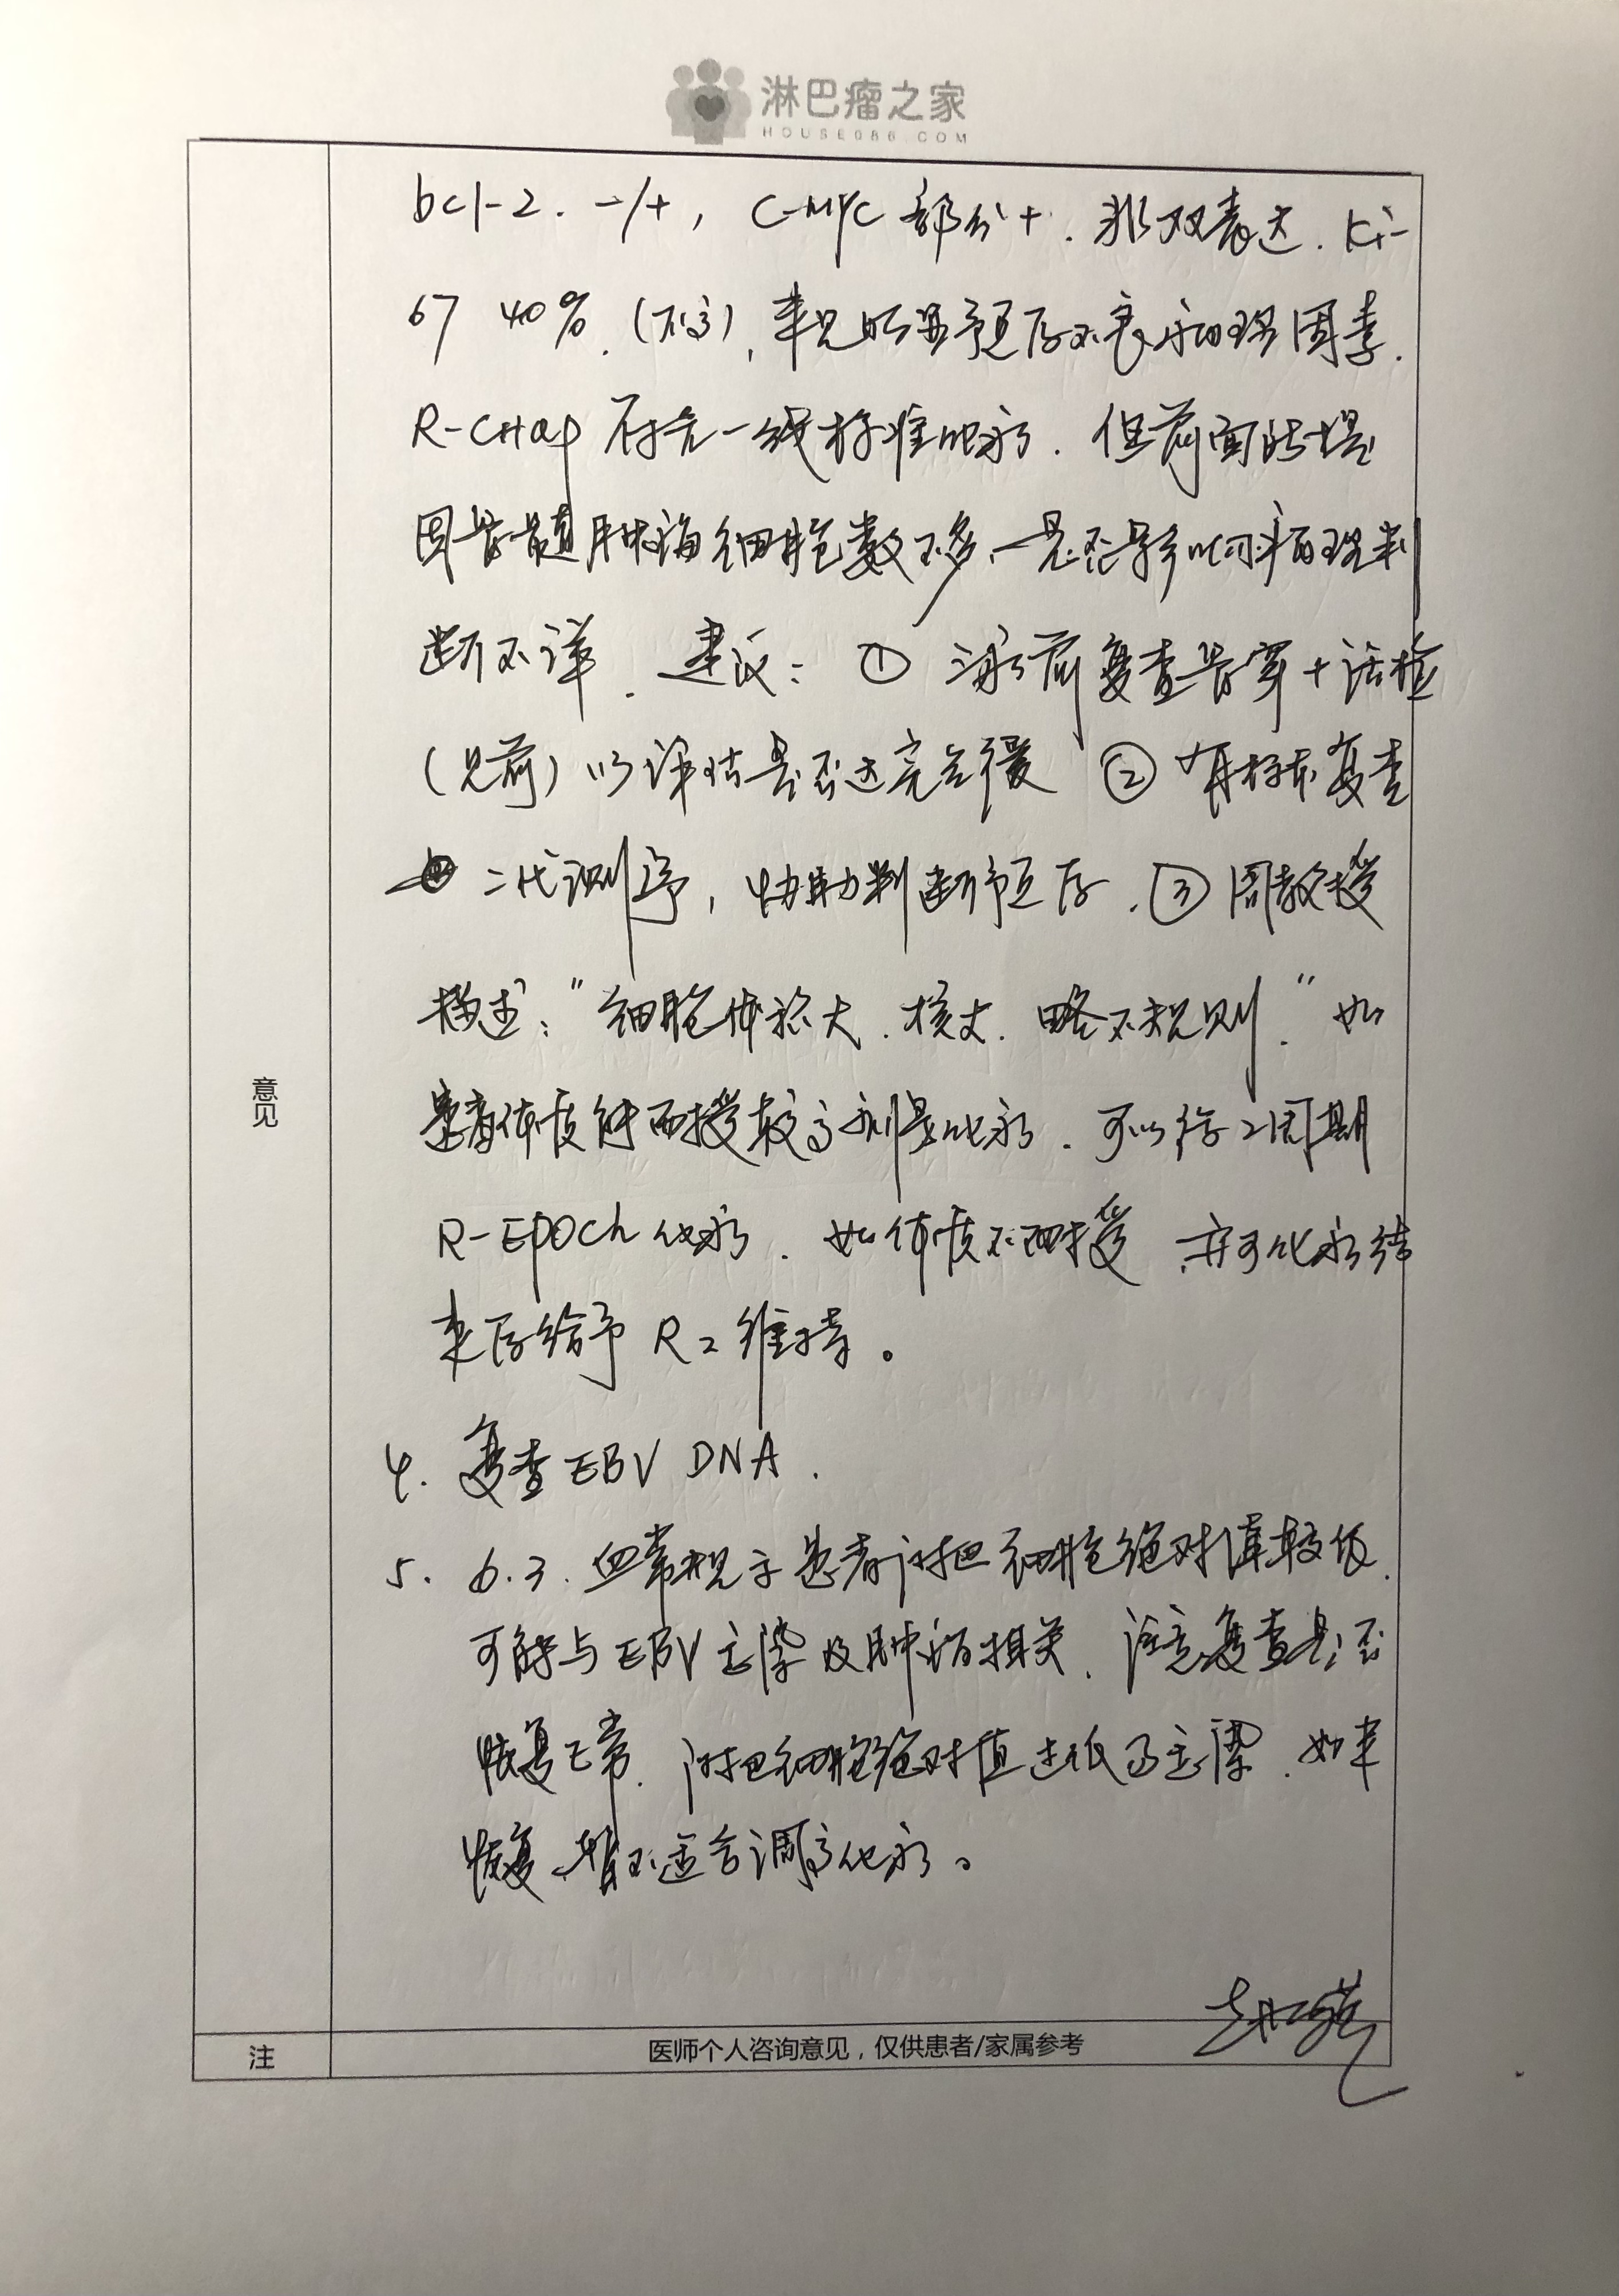 淋巴瘤之家
HOUSE086.COM
bcl-2. -/+, C-MYC 部分+. 非双表达. Ki-
67 40%. (不高), 未见明显预后不良病理因素.
R-CHOP 符合一线标准化疗. 但前面的
因骨髓肿瘤细胞数不多, 是否影响病理判
断不详. 建议: ① 治疗前复查骨穿+活检
(见前) 以评估是否达完全缓 ② 再标本复查
二代测序, 协助判断预后. ③ 周教授
描述: "细胞体积大. 核大. 略不规则." 如
患者体质能耐受较高剂量化疗. 可以行2周期
R-EPOCh 化疗. 如体质不耐受, 亦可化疗结
束后给予 R2 维持。
4. 复查 EBV DNA.
5. 6.3. 血常规示患者淋巴细胞绝对值较低.
可能与 EBV 感染及肿瘤相关. 注意复查是否
恢复正常. 淋巴细胞绝对值过低易感染. 如未
恢复, 暂不适合调高化疗。
意见
注
医师个人咨询意见，仅供患者/家属参考